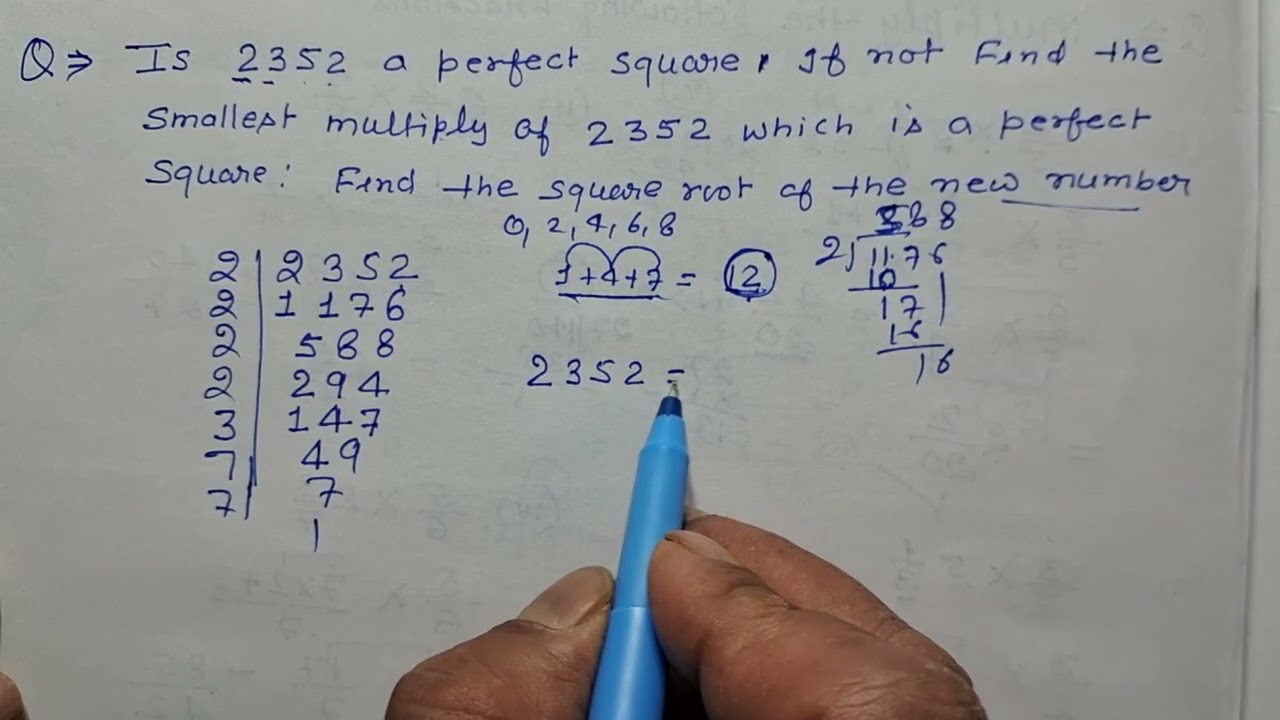 Q⇒ Is 2352 a perfect square, If not Find the
Smallest multiply of 2352 which is a perfect
Square: Find the square root of the new number
0, 2, 4, 6, 8
1+4+7 = 12
588
2)1176
10
17
16
16
2 | 2352
2 | 1176
2 | 588
2 | 294
3 | 147
7 | 49
7 | 7
1
2352 =